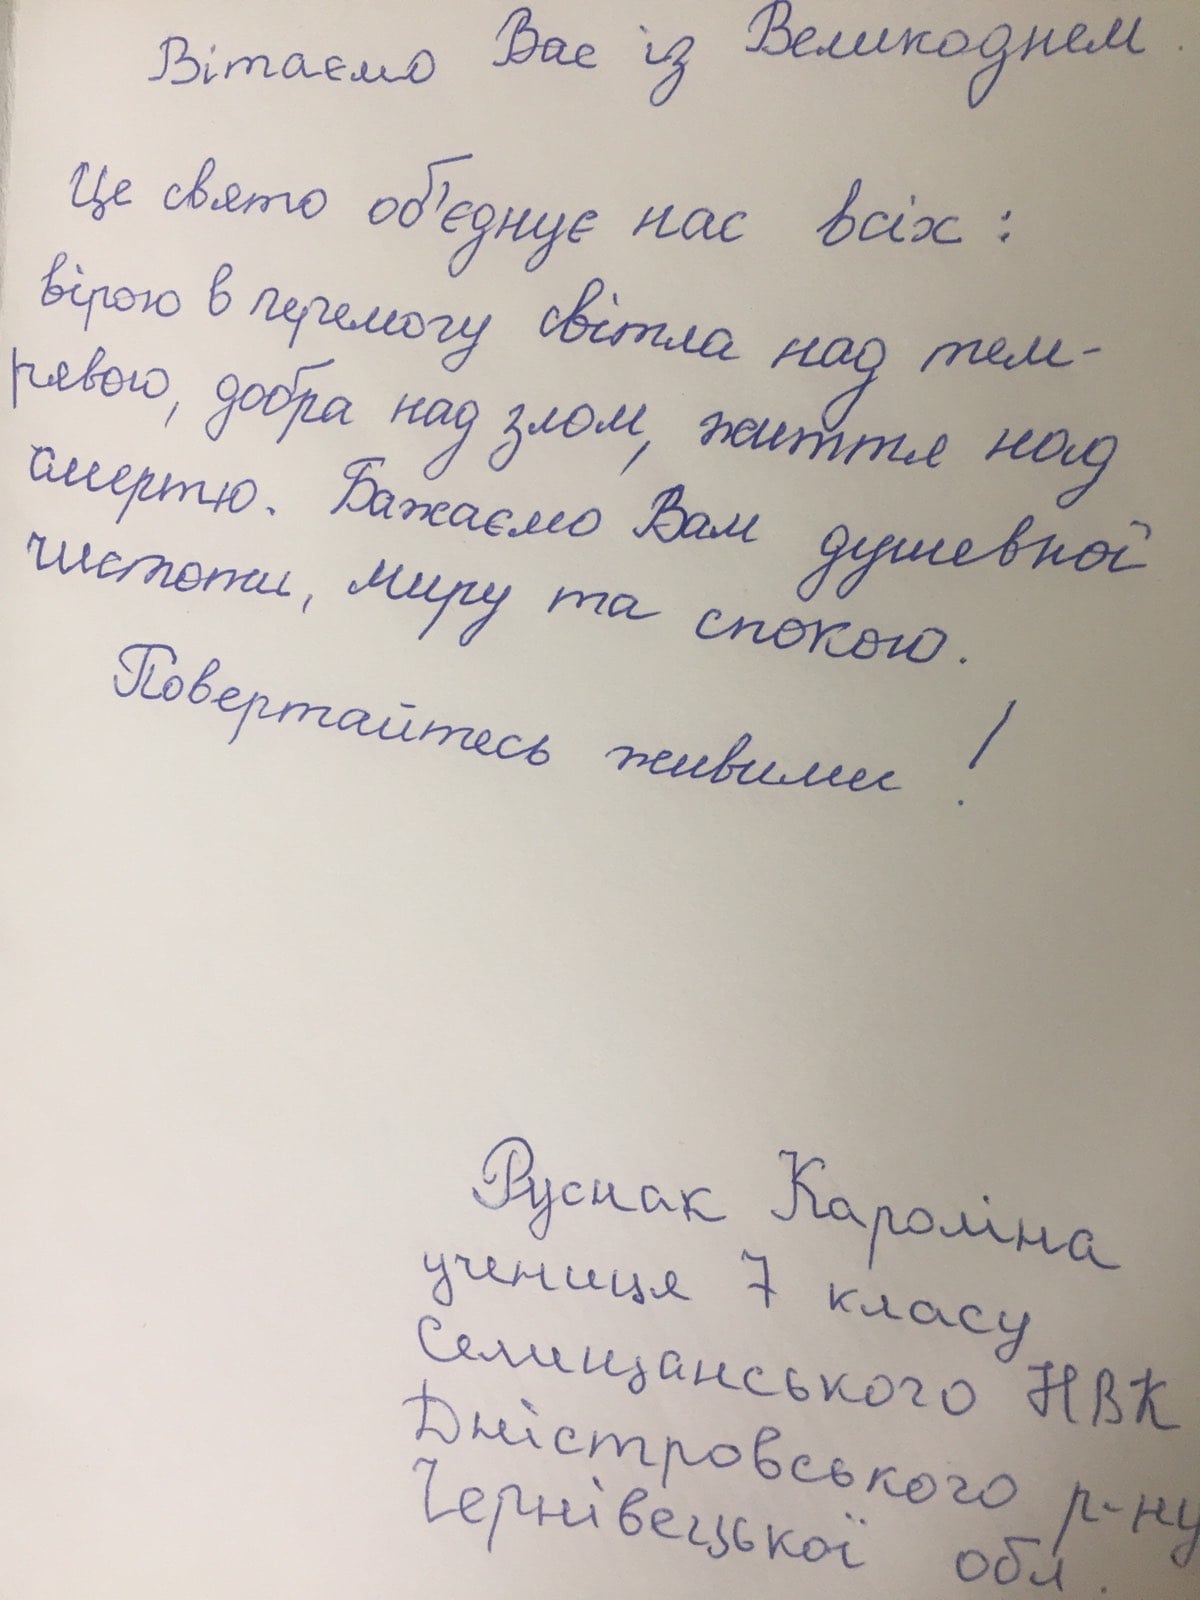 Вітаємо Вас із Великоднем.
Це свято об'єднує нас всіх:
вірою в перемогу світла над тем-
рявою, добра над злом, життя над
смертю. Бажаємо Вам душевної
чистоти, миру та спокою.
Повертайтесь живими!
Руснак Кароліна
учениця 7 класу
Селищанського НВК
Дністровського р-ну
Чернівецької обл.